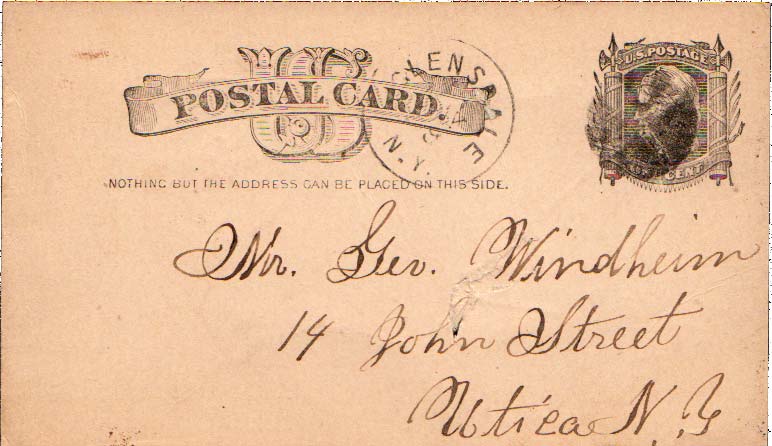 U.S. POSTAGE
POSTAL CARD.
N.Y.
NOTHING BUT THE ADDRESS CAN BE PLACED ON THIS SIDE.
Mr. Geo. Windheim
14 John Street
Utica N. Y